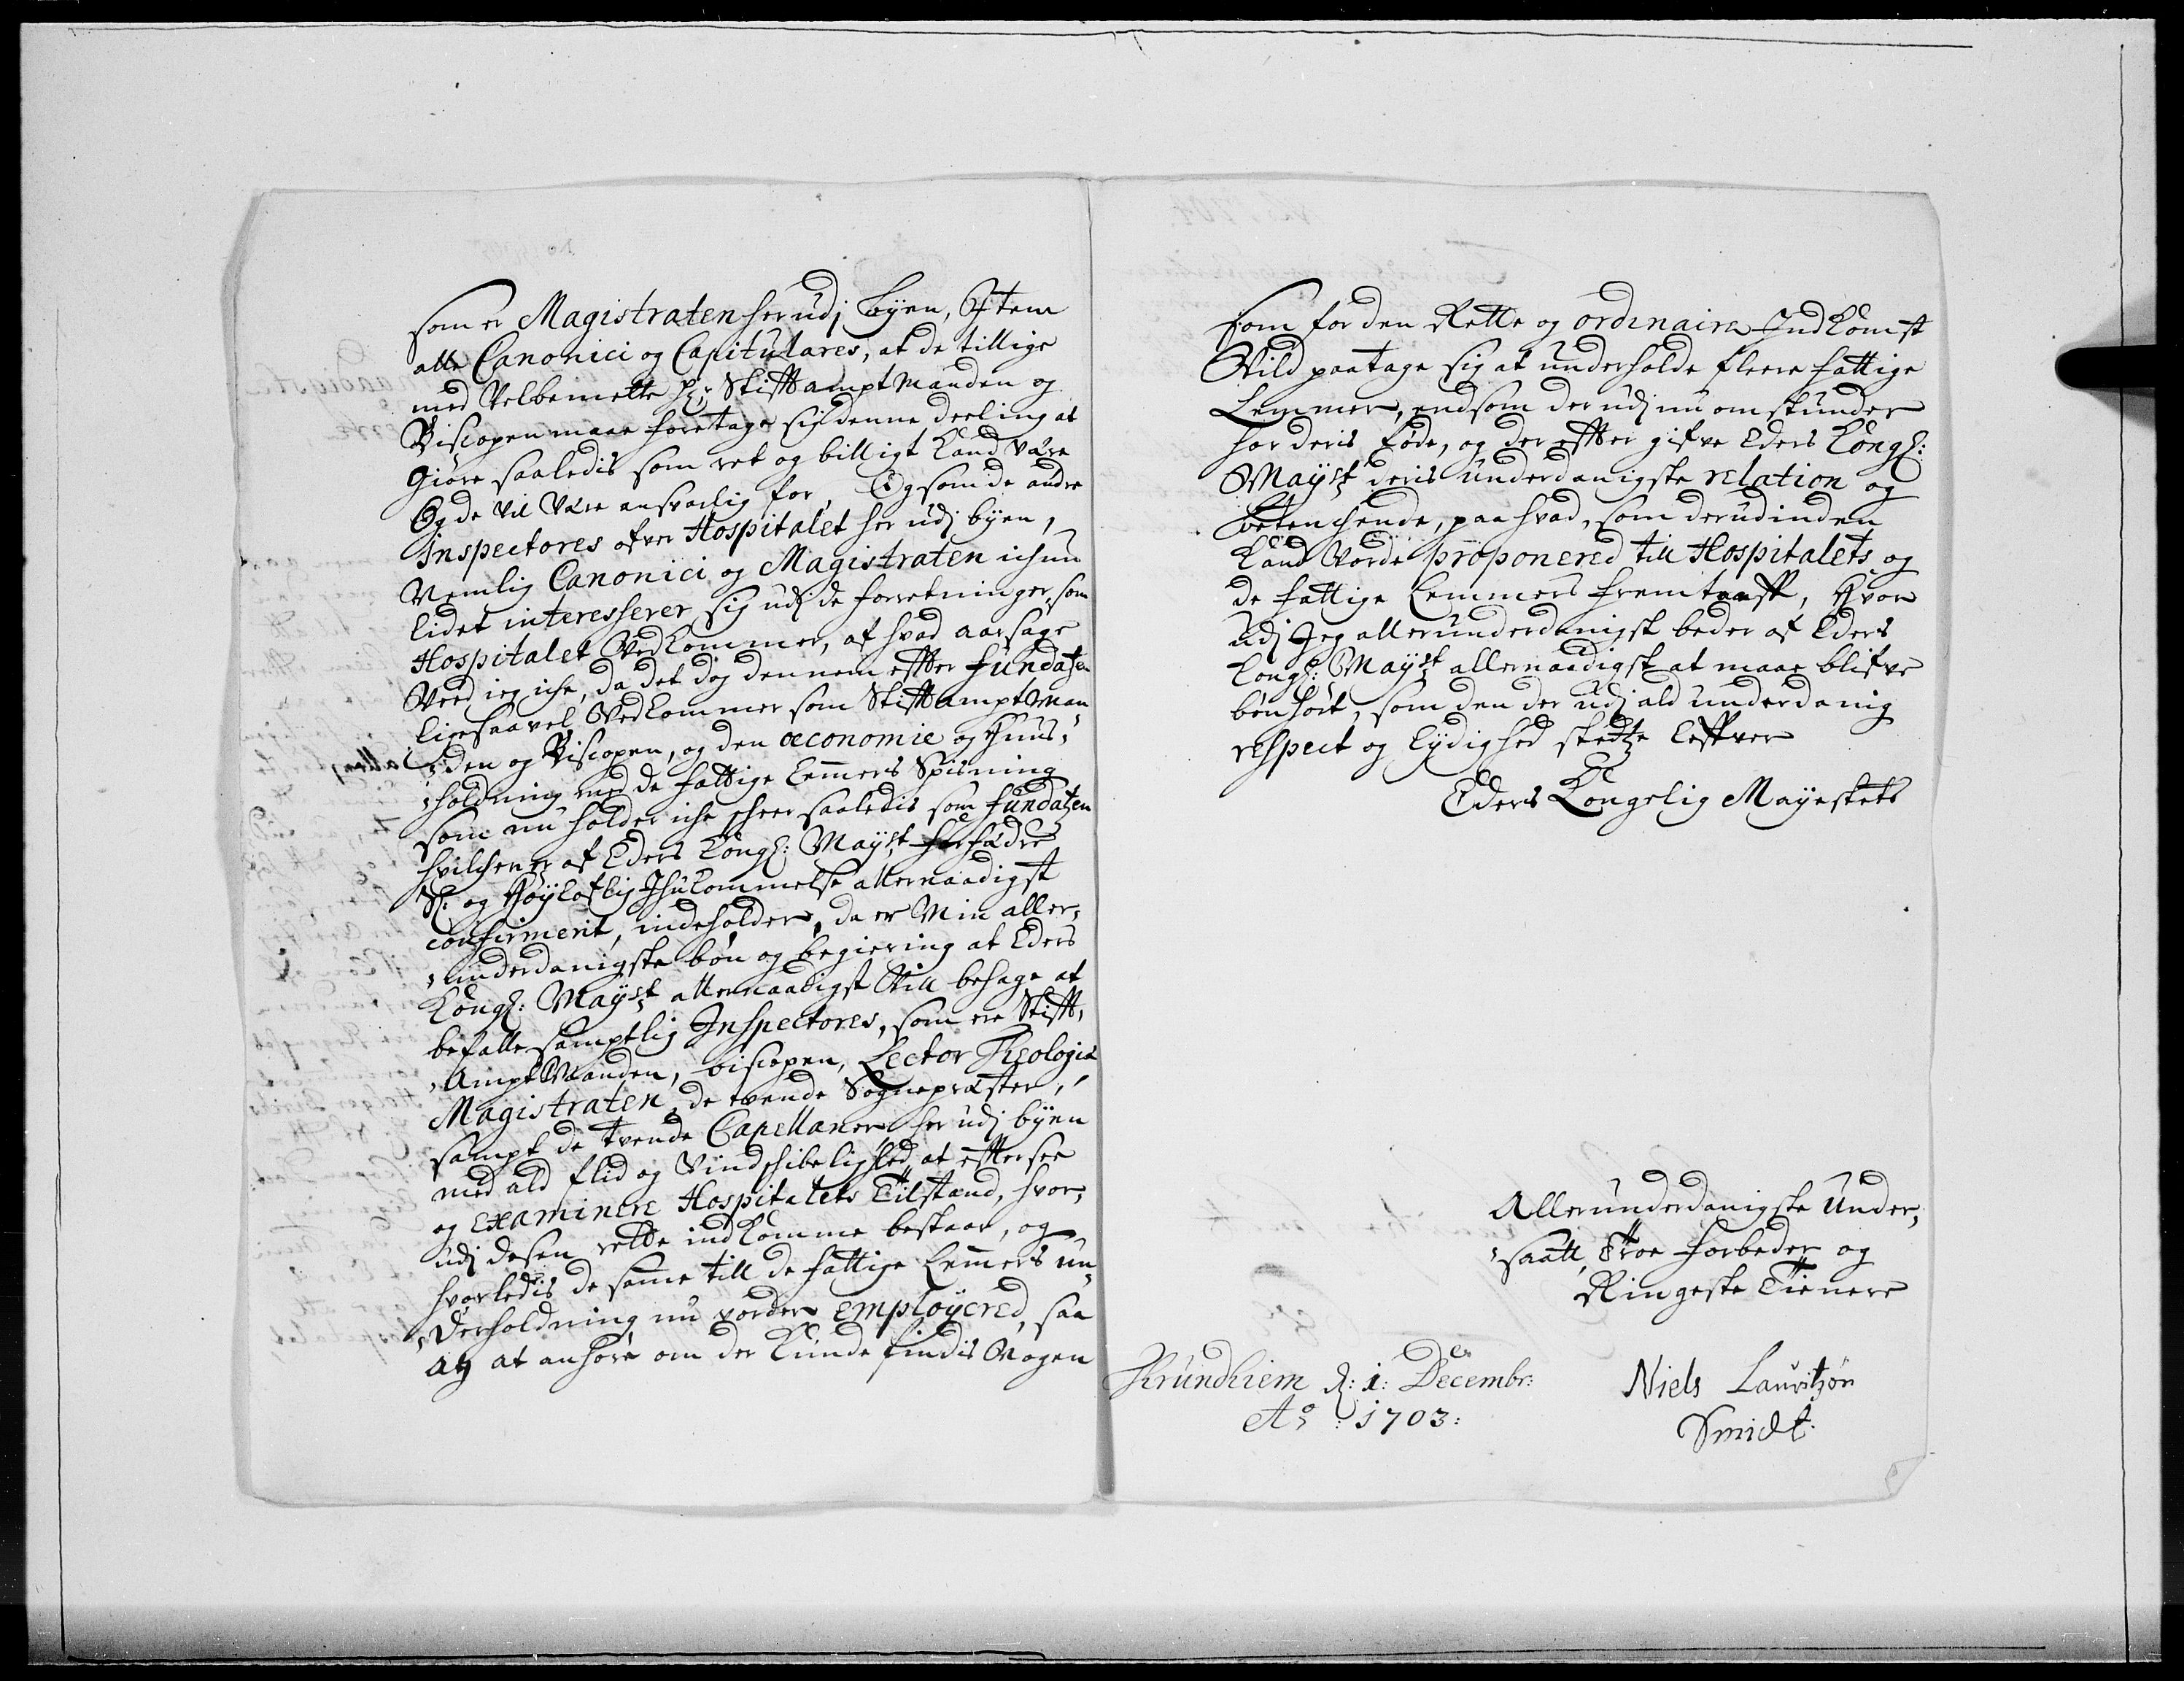 som er Magistraten her udj Byen, Item
alle Canonici og Capitulares, at de tillige
med Velbemelte Hr: StifftamptManden og
Biscopen maae foretage sig denne deeling at
giøre saaledis som ret og billigt kand være
Og de vil være ansvarlig for, Og som de andre
Inspectores ofver Hospitalet her udj byen,
Nemlig Canonici og Magistraten ichun
lidet interesserer sig udj de forretninger, som
Hospitalet Vedkommer, af hvad aarsage
Veed ieg iche, da det dog dennem effter fundatzen
ligesaavel Vedkommer som StifftamptMan,,
,,den og Biscopen, og den œconomie og Huus,,
,,holdning med de fattige Lemmers Spisning
som nu holder iche scheer saaledis som fundatzen
hvilchen er af Eders Kongl: Mayst forfædre
Sl: og Høyloflig Ihukommelse allernaadigst
confirmerit, indeholder, da er Min aller,,
,,underdanigste bøn og begiering at Eders
Kongl: Mayst allernaadigst Vill behage at
befalle samptlig Inspectores, som ere Stifft,,
,,AmptManden, biscopen, Lector Theologiæ
Magistraten, de tvende Sognepræster,
sampt de tvende Capellaner her udj byen
med ald flid og Vindschibelighed at effter see
og examinere Hospitalets Tilstand, hvor,,
udj desen rette indkomme bestaar, og
hvorledis de samme till de fattige Lemmers un,,
,,derholdning nu vorder employered, saa
og at anhøre om der kunde findis Nogen
som for den Rette og ordinaire Indkomst
Vild paatage sig at underholde fleere fattige
Lemmer, end som der udj nu om stunder
har deris føde, og der effter gifve Eders Kongl:
Mayst deris underdanigste relation og
betenchende, paa hvad, som derudinden
kand vorde proponered till Hospitalets og
de fattige Lemmers fremtarff, Hvor
udj Jeg allerunderdanigst beder af Eders
Kongl: Mayst allernaadigst at maae blifve
bønhørt, som den der udj ald underdanig
respect og lydighed stedtze lefver
Eders Kongelig Mayestets
Allerunderdanigste Under,,
,,saatt, Troe forbeder og
Ringeste Tienere
Thrundhiem d: 1: Decembr:
Ao: 1703:
Niels Lauritzøn
Smidt: